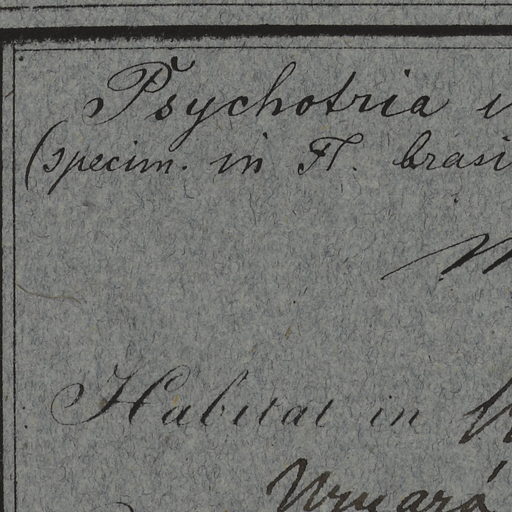 Psychotria
(specim. in Fl. brasi
Habitat in
Uruará